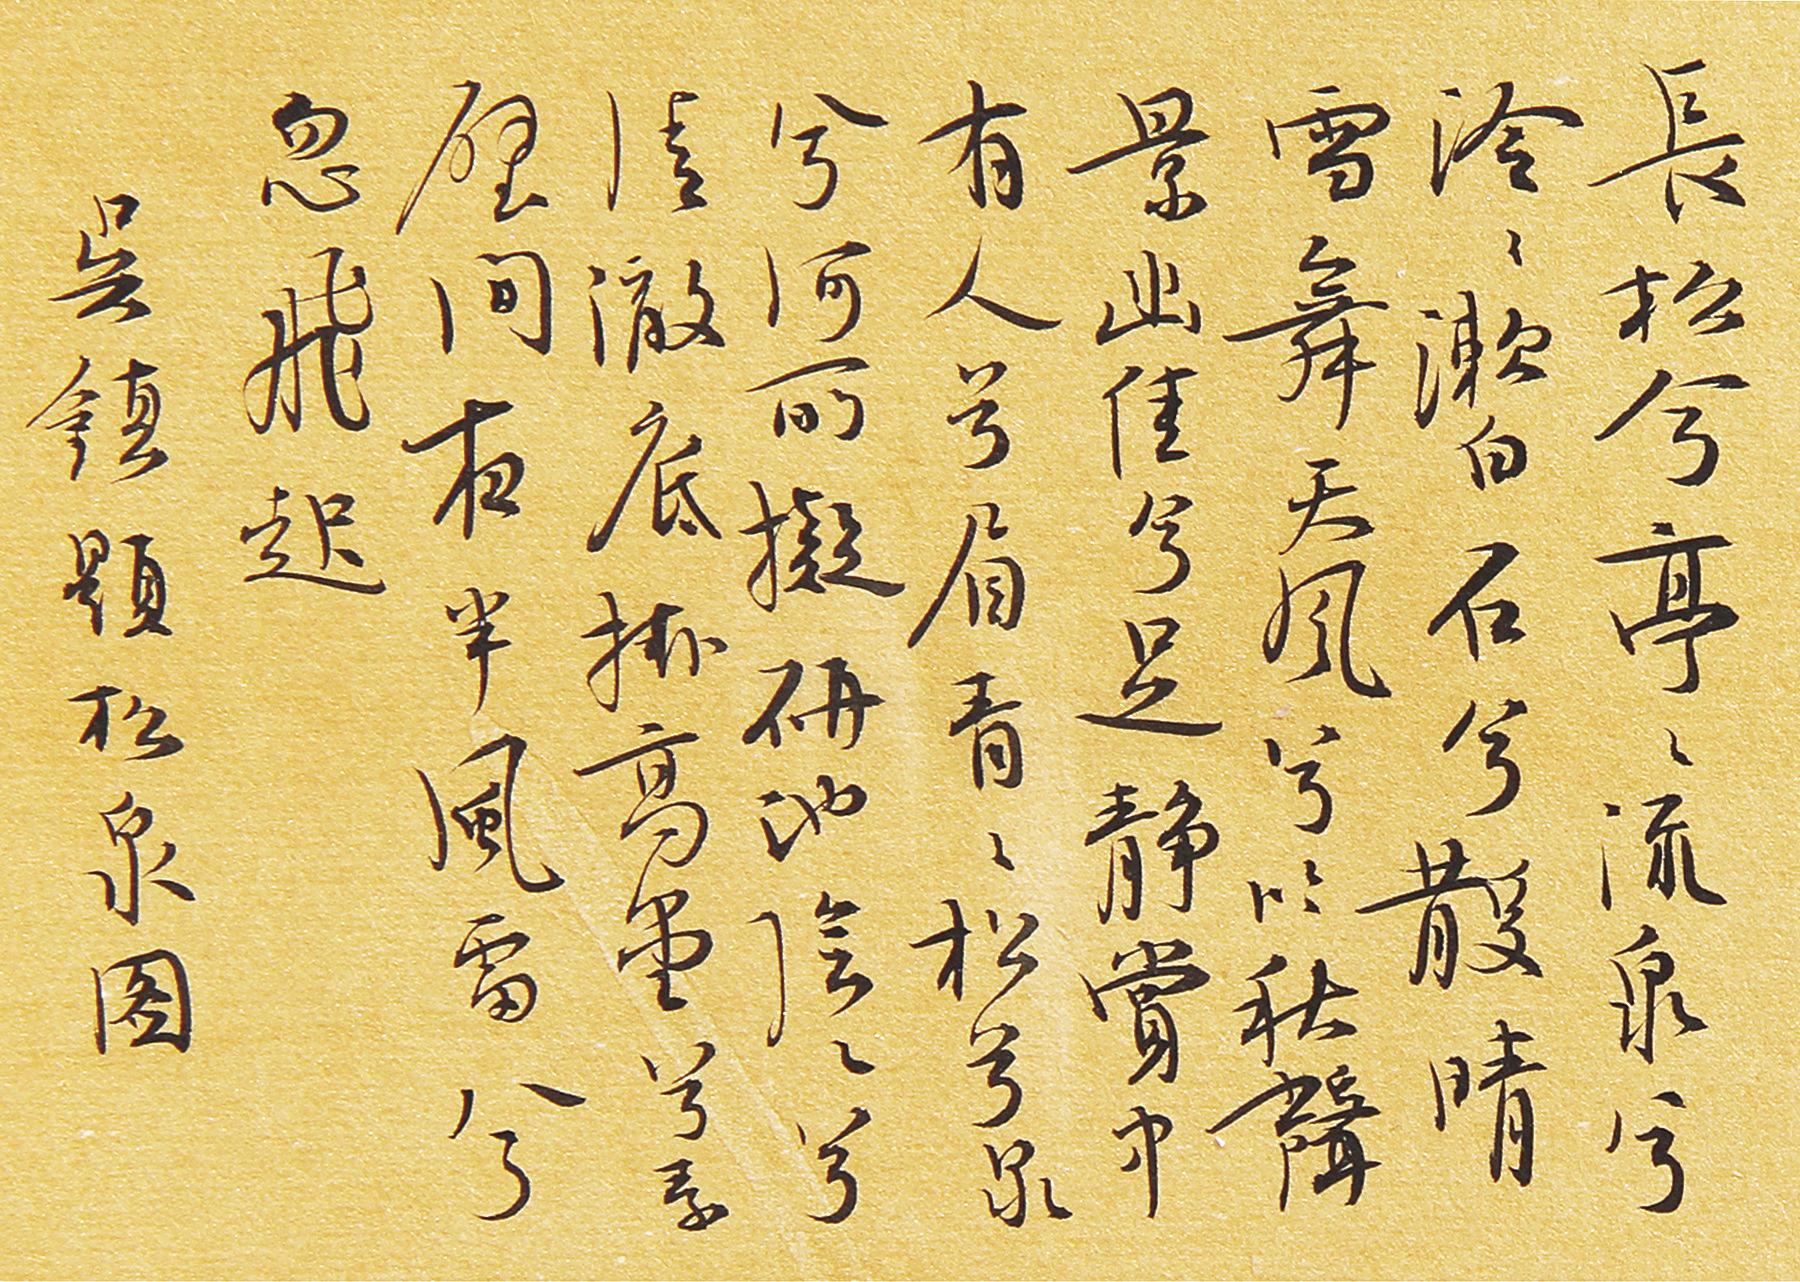 長松兮亭〻流泉兮
泠〻漱白石兮散晴
雪舞天風兮吟秋聲
景幽佳兮足静賞中
有人兮眉青〻松兮泉
兮何所擬研池陰〻兮
清澈底掛高堂兮素
壁間夜半風雷兮
忽飛起
吳鎮題松泉图